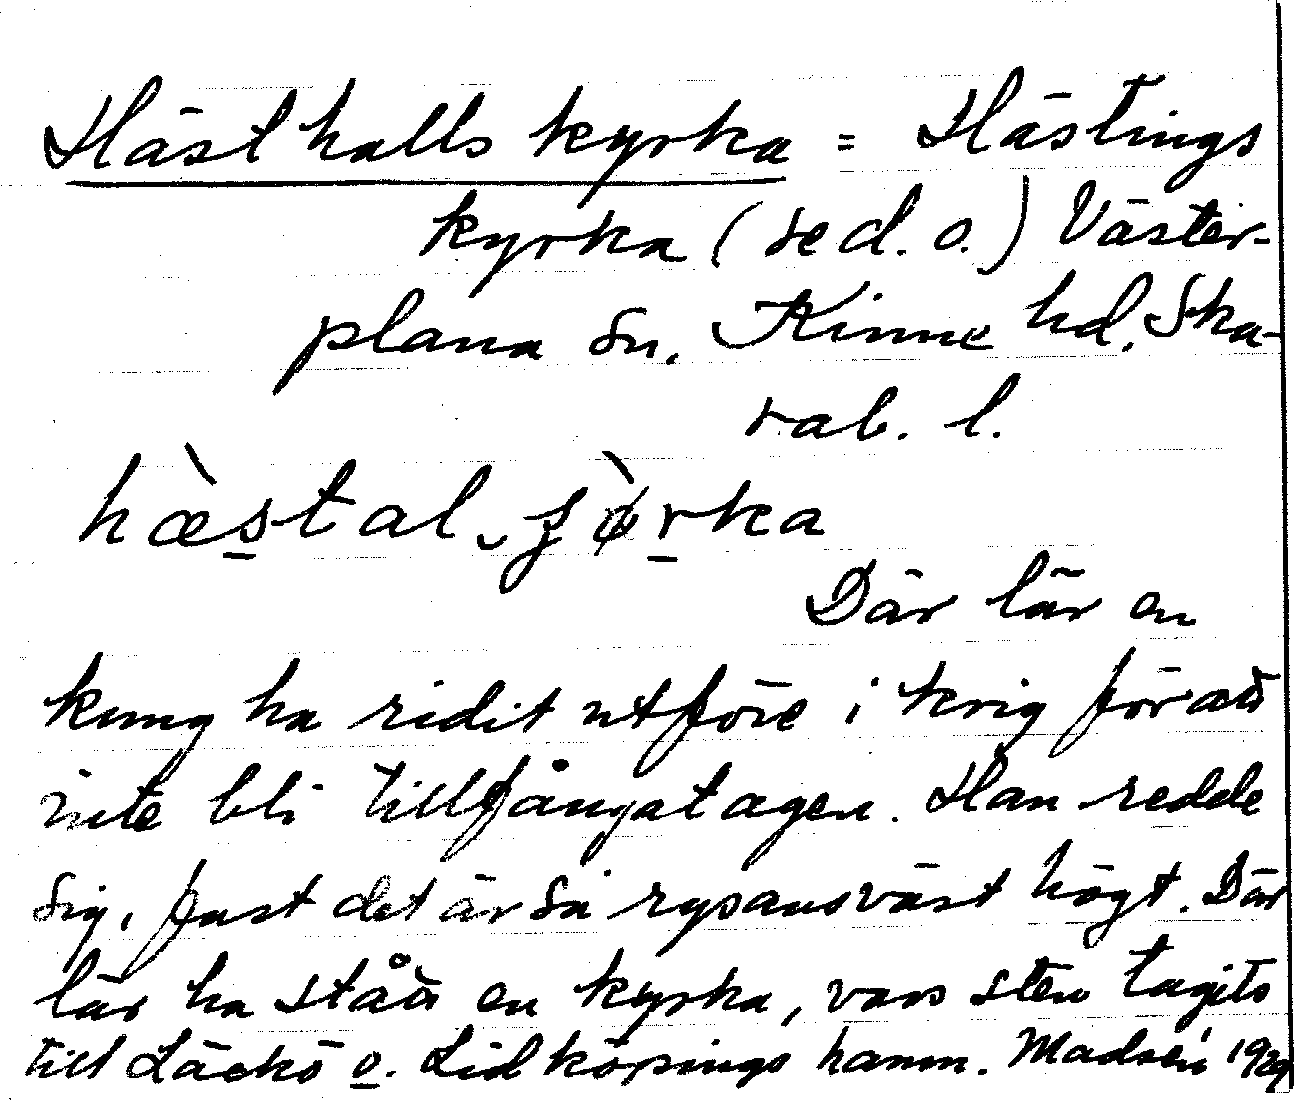 Hästhalls kyrka = Hästings
kyrka (se d. o.) Väster-
plana sn. Kinne hd. Ska-
rab. l.
hæ̀stal ʃø̀rka
Där lär en
kung ha ridit utföre i krig för att
inte bli tillfångatagen. Han redde
sig, fast det är så rysansvärt högt. Där
lär ha stått en kyrka, vars sten tagits
till Läckö o. Lidköpings hamn. Madsén 1929